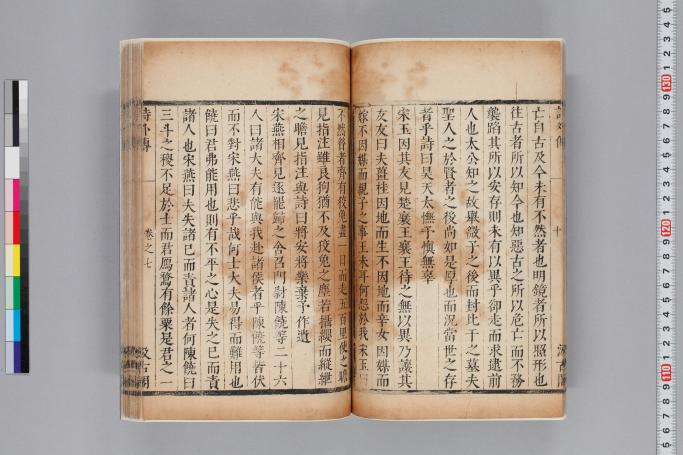 亡自古及今未有不然者也明鏡者所以照形也
往古者所以知今也知惡古之所以危亡而不務
襲蹈其所以安存則未有以異乎卻走而求逮前
人也太公知之故舉微子之後而封比干之墓夫
聖人之於賢者之後尚如是厚也而況當世之存
者乎詩曰昊天太憮予慎無辜
宋玉因其友見楚襄王襄王待之無以異乃讓其
友友曰夫薑桂因地而生不因地而辛女因媒而
嫁不因媒而親子之事王未耳何怨於我宋玉曰
不然昔者齊有狡兔盡一日而走五百里使之瞻
見指注雖良狗猶不及狡兔之塵若攝纓而縱紲
之瞻見指注與詩曰將安將樂棄予作遺
宋燕相齊見逐罷歸之舍召門尉陳饒等二十六
人曰諸大夫有能與我赴諸侯者乎陳饒等皆伏
而不對宋燕曰悲乎哉何士大夫易得而難用也
饒曰君弗能用也則有不平之心是失之己而責
諸人也宋燕曰夫失諸己而責諸人者何陳饒曰
三斗之稷不足於士而君鴈鶩有餘粟是君之一
詩外傳
卷之七
汲古閣
130
120
110